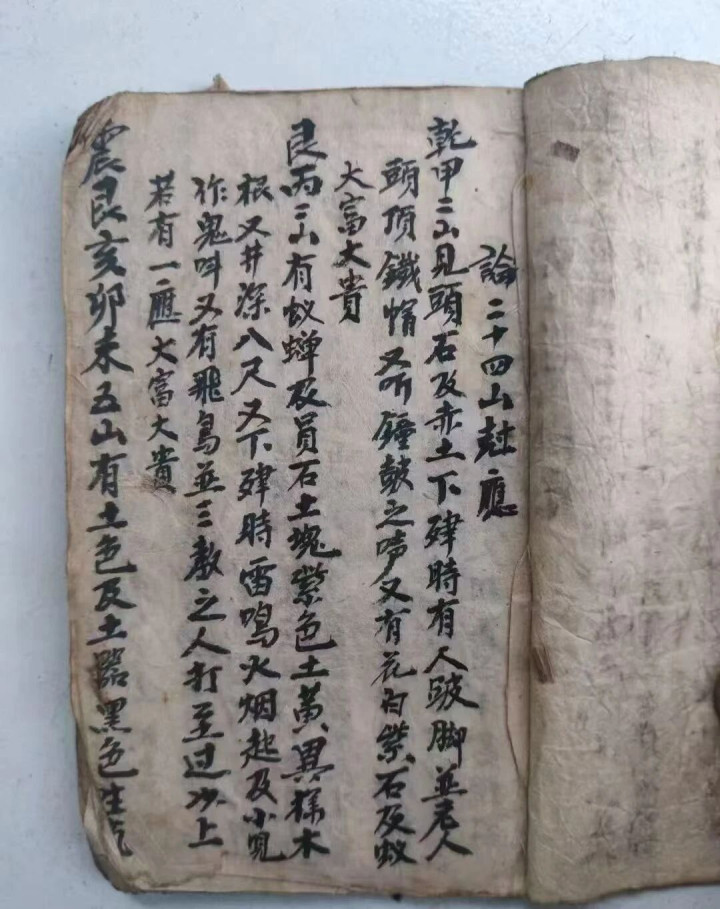 論二十四山尅應
乾甲二山見頭石及赤土下肂時有人跛脚並老人
頭頂鐵帽又听鐘皷之声又有花白紫石及蚁
大富大貴
艮丙二山有蚁蟬及員石土塊紫色土黄異樣木
根又井深八尺又下肂時雷鳴火烟起及小児
作鬼呌又有飛鳥並三教之人打至过水上
若有一應大富大貴
震艮亥卯未五山有土色及土器黑色生气